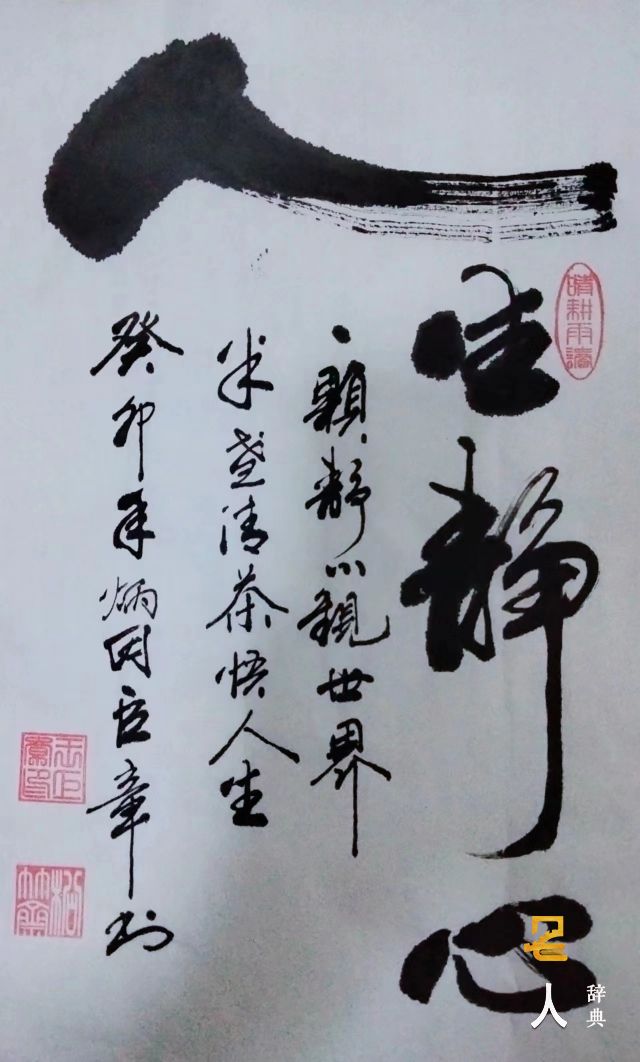 人
生静心
晴耕雨讀
一顆静心觀世界
半盏清茶悟人生
癸卯年炳
书
名人
辞典